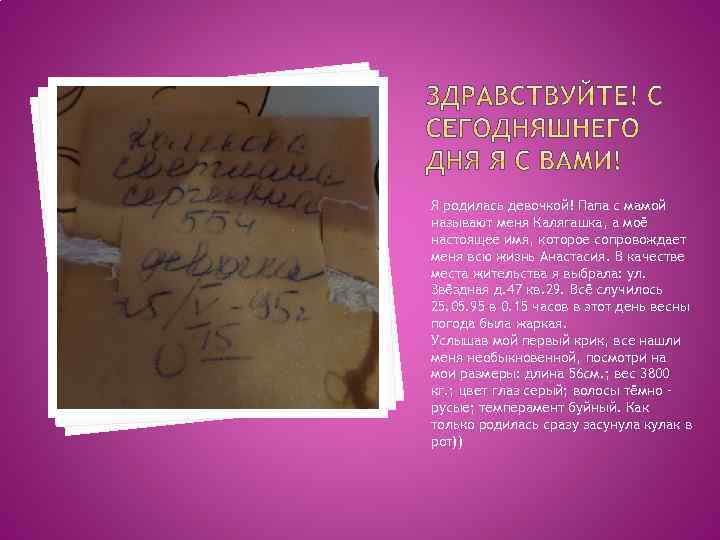 светлана
сергеевна
554
девочка
25/V-95г
0 15
ЗДРАВСТВУЙТЕ! С
СЕГОДНЯШНЕГО
ДНЯ Я С ВАМИ!
Я родилась девочкой! Папа с мамой
называют меня Калягашка, а моё
настоящее имя, которое сопровождает
меня всю жизнь Анастасия. В качестве
места жительства я выбрала: ул.
Звёздная д.47 кв.29. Всё случилось
25.05.95 в 0.15 часов в этот день весны
погода была жаркая.
Услышав мой первый крик, все нашли
меня необыкновенной, посмотри на
мои размеры: длина 56см.; вес 3800
кг.; цвет глаз серый; волосы тёмно –
русые; темперамент буйный. Как
только родилась сразу засунула кулак в
рот))